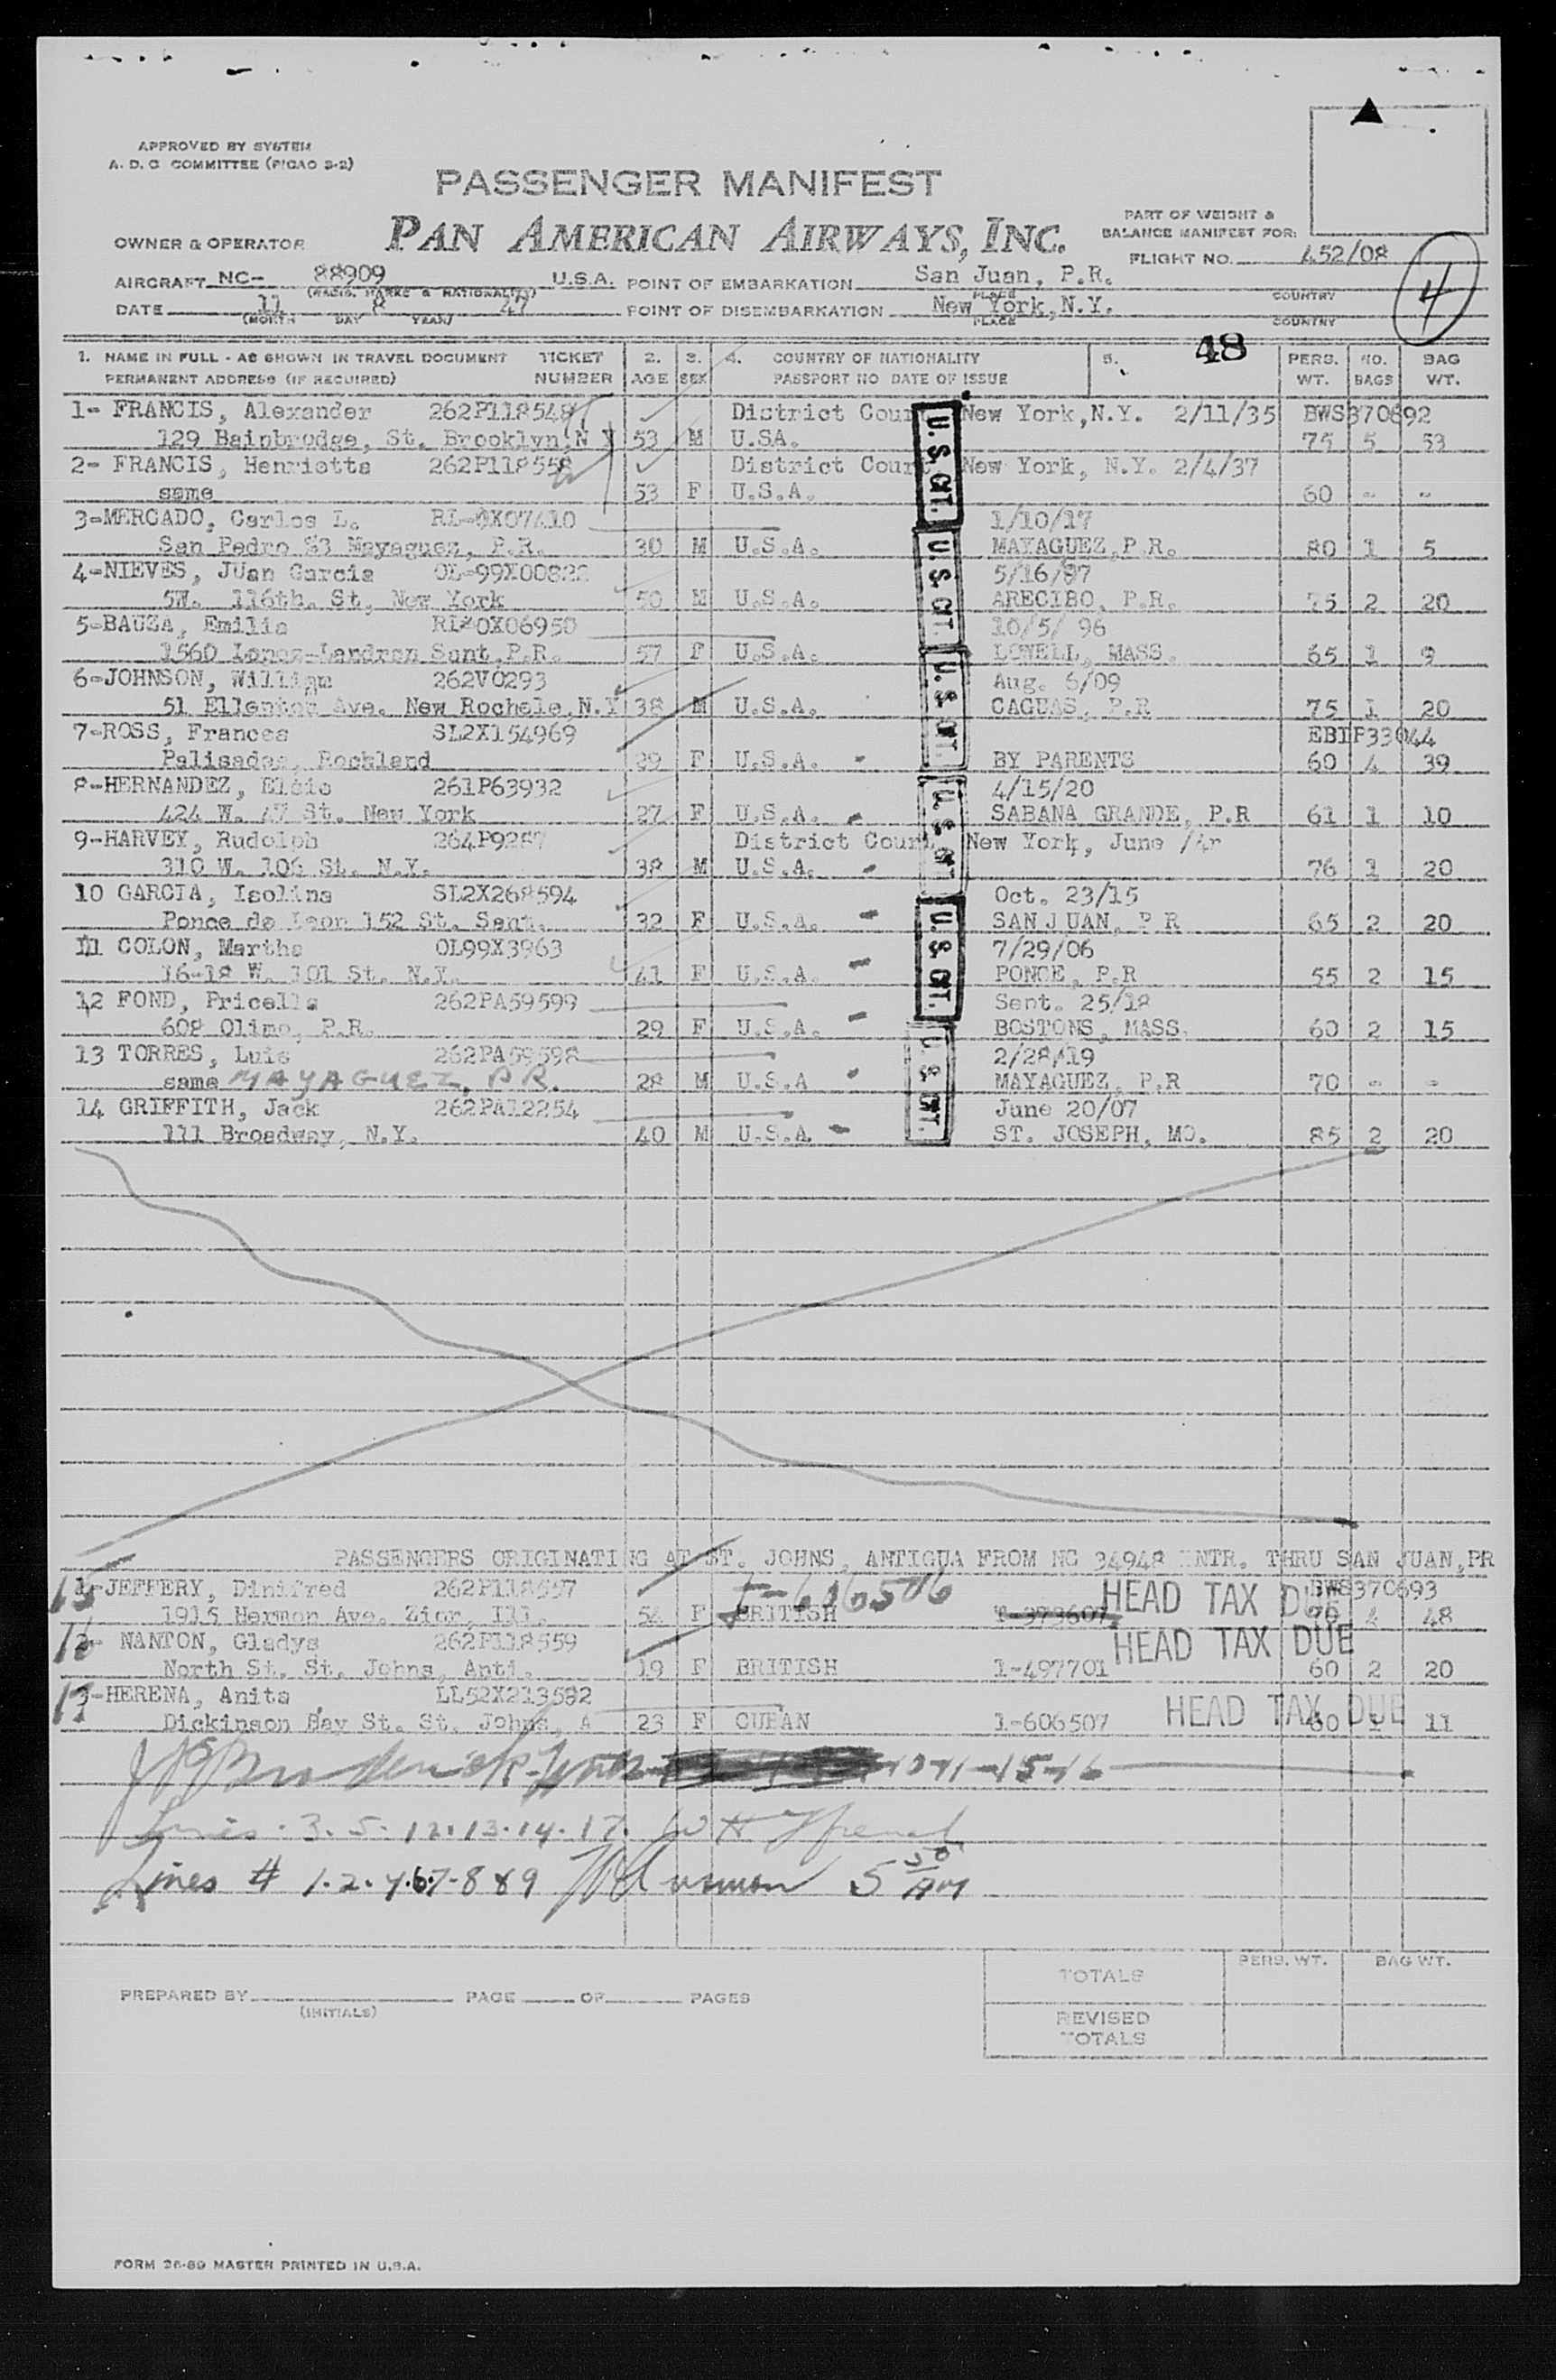 APPROVED BY SYSTEM
A. D. C COMMITTEE (PICAO 2-2)
PASSENGER MANIFEST
PAN AMERICAN AIRWAYS, INC.
PART OF WEIGHT &
BALANCE MANIFEST FOR:
OWNER & OPERATOR
FLIGHT NO. 452/08
4
AIRCRAFT NC- 88909 U.S.A. POINT OF EMBARKATION San Juan, P.R.
(REGIS. MARKS & NATIONALITY) PLACE COUNTRY
DATE 11 8 47 POINT OF DISEMBARKATION New York, N.Y.
(MONTH DAY YEAR) PLACE COUNTRY
48
1. NAME IN FULL - AS SHOWN IN TRAVEL DOCUMENT TICKET 2. 3. 4. COUNTRY OF NATIONALITY 5. PERS. NO. BAG
PERMANENT ADDRESS (IF REQUIRED) NUMBER AGE SEX PASSPORT NO DATE OF ISSUE WT. BAGS WT.
1- FRANCIS, Alexander 262P118548 District Court New York,N.Y. 2/11/35 BWS370692
129 Bainbrodge, St. Brooklyn,N Y 53 M U.SA. 75 5 53
2- FRANCIS, Henrietta 262P118558 District Court New York, N.Y. 2/4/37
same 53 F U.S.A. 60 - -
3-MERCADO, Carlos L. RI-0X07410 1/10/17
San Pedro 83 Mayaguez, P.R. 30 M U.S.A. MAYAGUEZ,P.R. 80 1 5
4-NIEVES, JUan Garcia OL-99X00822 5/16/97
5W. 116th. St, New York 50 M U.S.A. ARECIBO, P.R. 75 2 20
5-BAUZA, Emilia RI-0X06950 10/5/ 96
1560 Lopez-Landron Sant,P.R. 57 F U.S.A. LOWELL, MASS. 65 1 9
6-JOHNSON, William 262V0293 Aug. 6/09
51 Ellenton Ave. New Rochele,N.Y 38 M U.S.A. CAGUAS, P.R 75 1 20
7-ROSS, Frances SL2X154969 EBTP33044
Palisades, Rockland 29 F U.S.A. - BY PARENTS 60 4 39
8-HERNANDEZ, Elcie 261P63932 4/15/20
424 W. 47 St. New York 27 F U.S.A. - SABANA GRANDE, P.R 61 1 10
9-HARVEY, Rudolph 264P9287 District Court New York, June
310 W. 106 St. N.Y. 38 M U.S.A. - 76 1 20
10 GARCIA, Isolina SL2X268594 Oct. 23/15
Ponce de Leon 152 St. Sant. 32 F U.S.A. - SAN JUAN, P R 65 2 20
11 COLON, Martha OL99X3963 7/29/06
16-18 W. 101 St. N.Y. 41 F U.S.A. - PONCE, P.R 55 2 15
12 FOND, Pricella 262PA59599 Sept. 25/18
608 Olimo, P.R. 29 F U.S.A. - BOSTONS, MASS. 60 2 15
13 TORRES, Luis 262PA59598 2/28/19
same MAYAGUEZ, P.R. 28 M U.S.A - MAYAGUEZ, P.R 70 - -
14 GRIFFITH, Jack 262PA12254 June 20/07
111 Broadway, N.Y. 40 M U.S.A. - ST. JOSEPH, MO. 85 2 20
U. S. CIT.
U. S. CIT.
U. S. CIT.
U. S. CIT.
U. S. CIT.
U. S. CIT.
PASSENGERS ORIGINATING AT ST. JOHNS, ANTIGUA FROM NC 34948 INTR. THRU SAN JUAN,PR
15 1-JEFFERY, Dinifred 262P118557 I-606506 HEAD TAX DUE BWS370693
1915 Hermon Ave. Zior, Ill. 54 F BRITISH 1-373607 70 4 48
16 2- NANTON, Gladys 262P118559 HEAD TAX DUE
North St. St. Johns, Anti. 19 F BRITISH 1-497701 60 2 20
17 3-HERENA, Anita LL52X213582 HEAD TAX DUE
Dickinson Bay St. St. Johns, A 23 F CUBAN 1-606507 60 1 11
10-11-15-16
Lines 3. 5. 12. 13. 14. 17.
Lines # 1. 2. 4. 6. 7- 8 & 9 5 50 AM
TOTALS PERS. WT. BAG WT.
PREPARED BY PAGE OF PAGES
(INITIALS)
REVISED
TOTALS
FORM 26-89 MASTER PRINTED IN U.S.A.